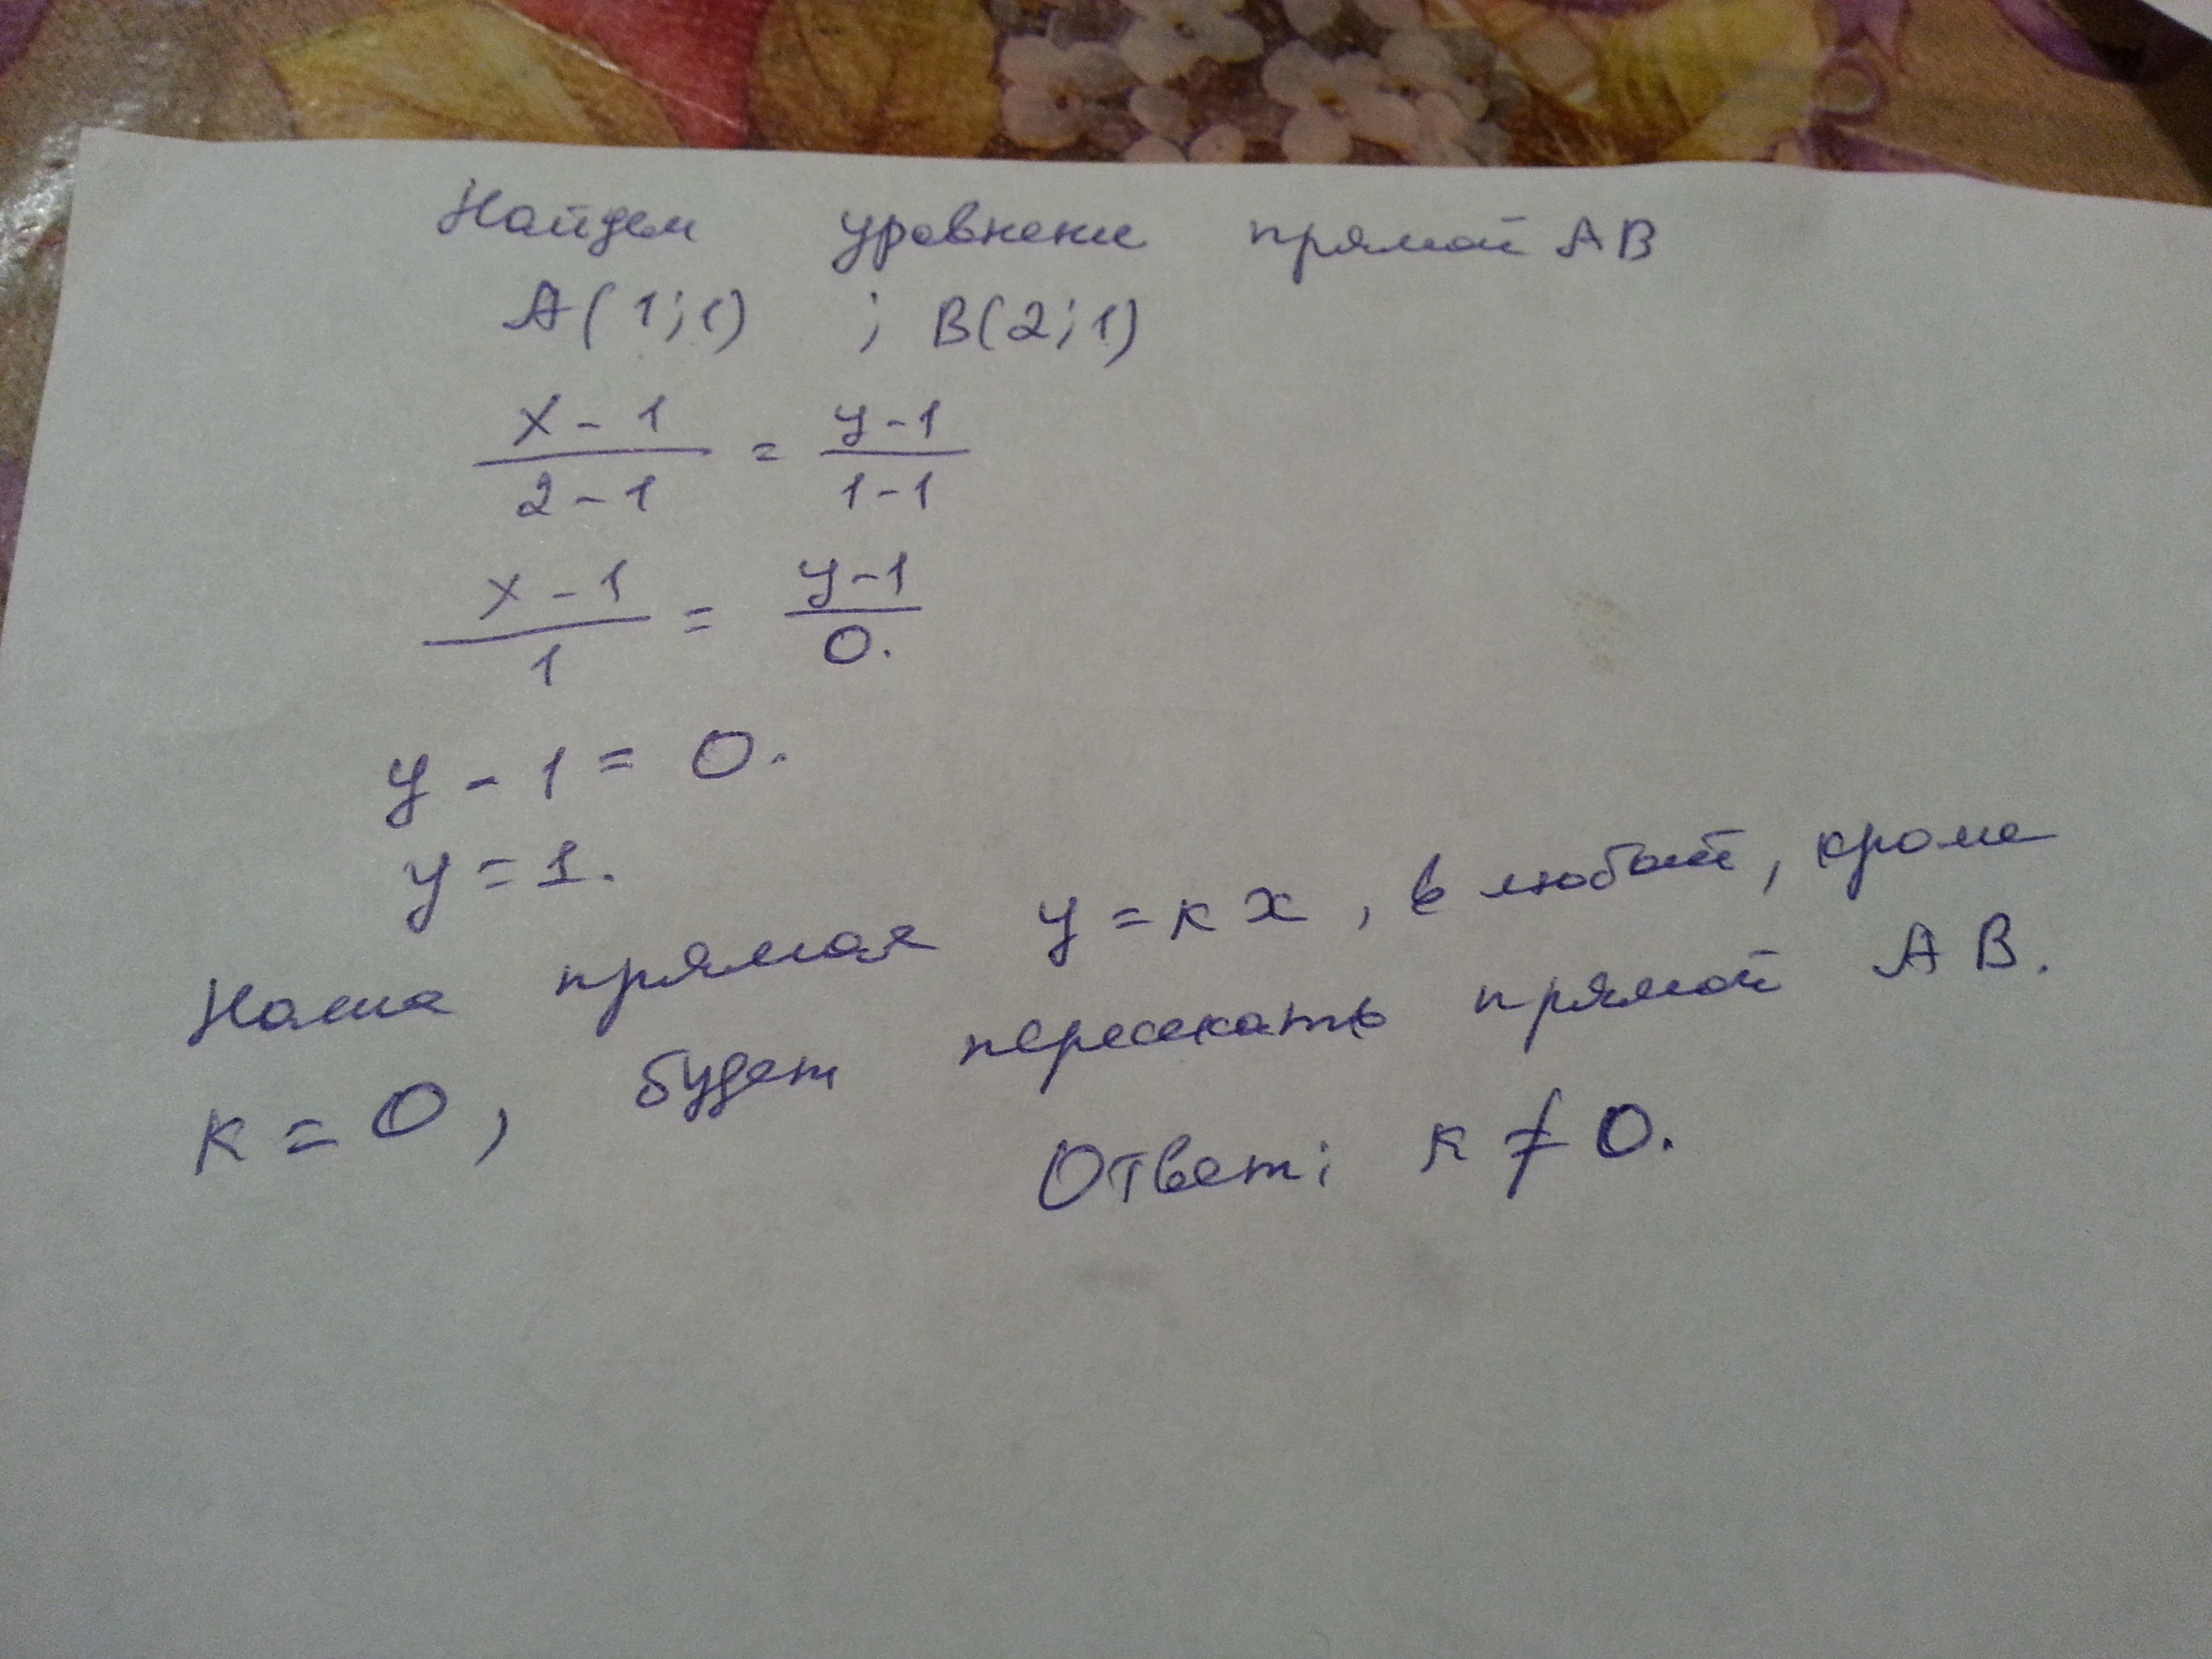 Найдем уровнени прямой AB
A(1;1) ; B(2;1)
x-1/2-1 = y-1/1-1
x-1/1 = y-1/0.
y-1=0.
y=1.
Наша прямая y=kx, в любой, кроме
k=0, будет пересекать прямой AB.
Ответ: k≠0.